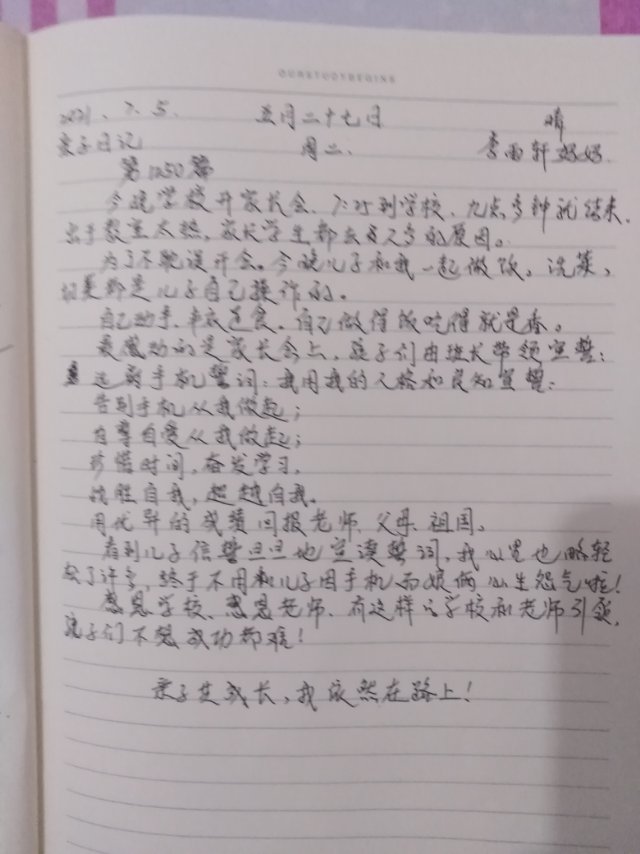 OURSTUDYBEGINS
2021.7.5. 五月二十七日 晴
亲子日记 周二. 李雨轩妈妈.
第1250篇
今晚学校开家长会、7:25到学校、九点多钟就结束.
由于教室太热,家长学生都去多的原因。
为了不耽误开会。今晚儿子和我一起做饭。洗菜,
切菜都是儿子自己操作的。
自己动手,丰衣足食。自己做得饭吃得就是香。
最感动的是家长会上,孩子们由班长带领宣誓:
远离手机誓词:我用我的人格和良知宣誓:
告别手机从我做起;
自尊自爱从我做起;
珍惜时间,奋发学习.
战胜自我,超越自我。
用优异的成绩回报老师、父母、祖国。
看到儿子信誓旦旦地宣读誓词,我心里也略轻
松了许多,终于不用和儿子因手机而娘俩心生怨气啦!
感恩学校、感恩老师、有这样的学校和老师引领,
孩子们不想成功都难!
亲子共成长,我依然在路上!